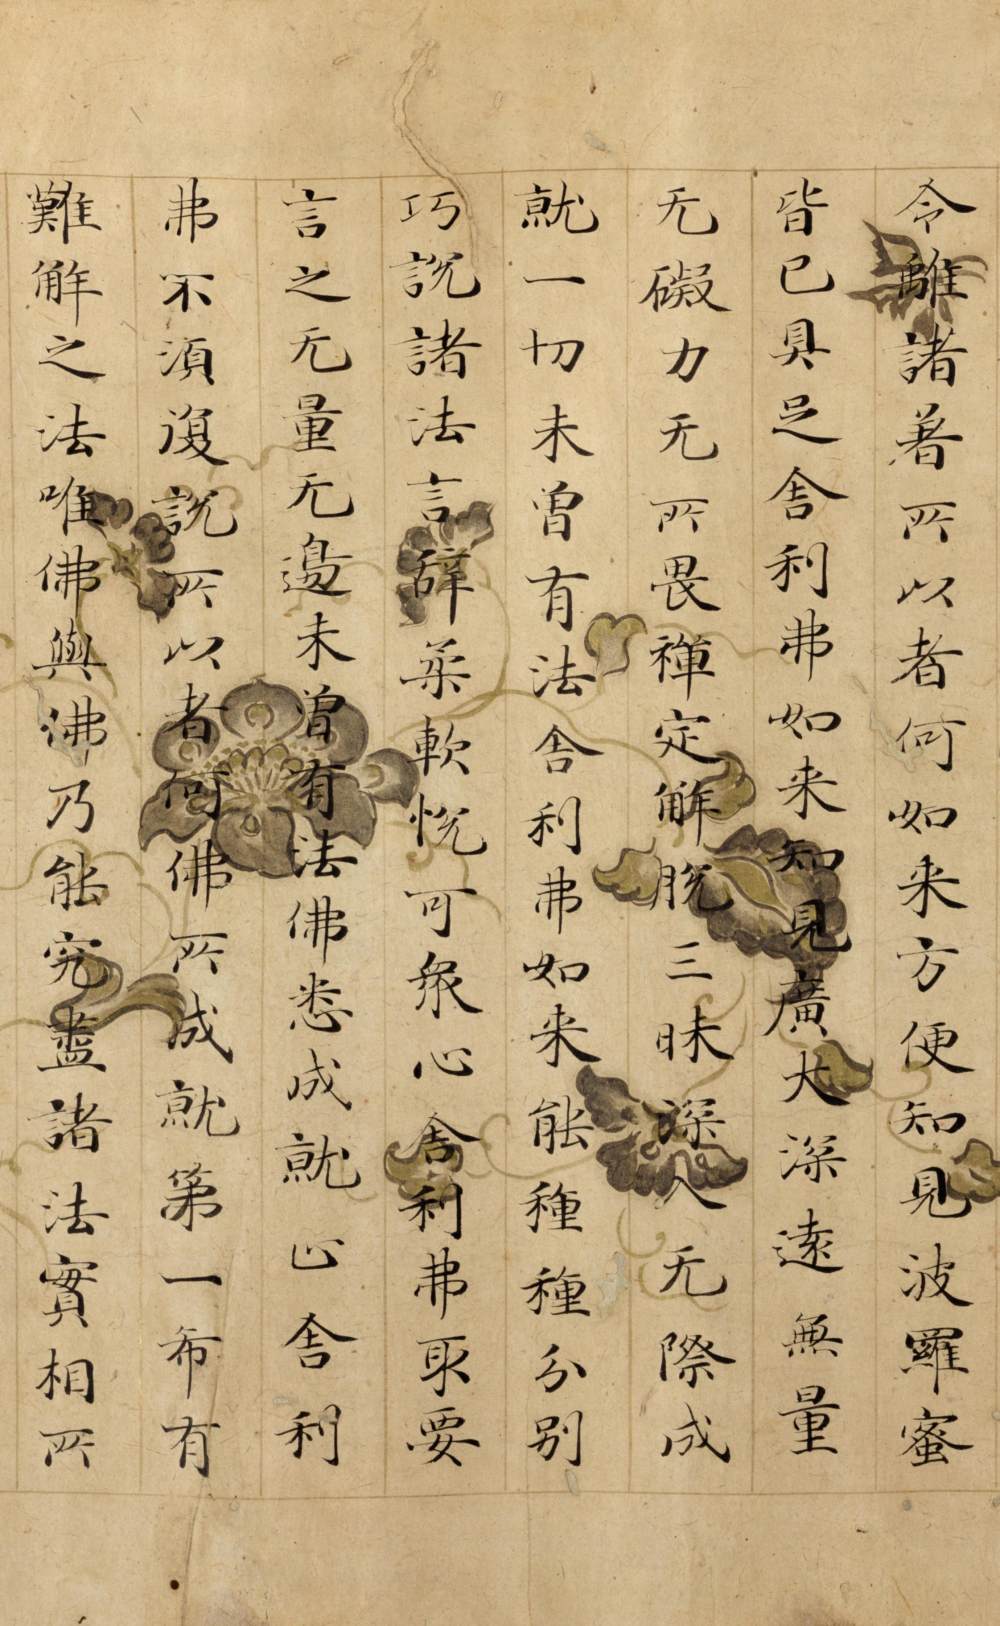 令離諸著所以者何如来方便知見波羅蜜
皆已具足舎利弗如来知見廣大深遠無量
无礙力无所畏禅定解脱三昧深入无際成
就一切未曽有法舎利弗如来能種種分別
巧説諸法言辞柔軟悦可衆心舎利弗取要
言之无量无邊未曽有法佛悉成就止舎利
弗不湏復説所以者何佛所成就第一希有
難解之法唯佛與佛乃能究盡諸法實相所